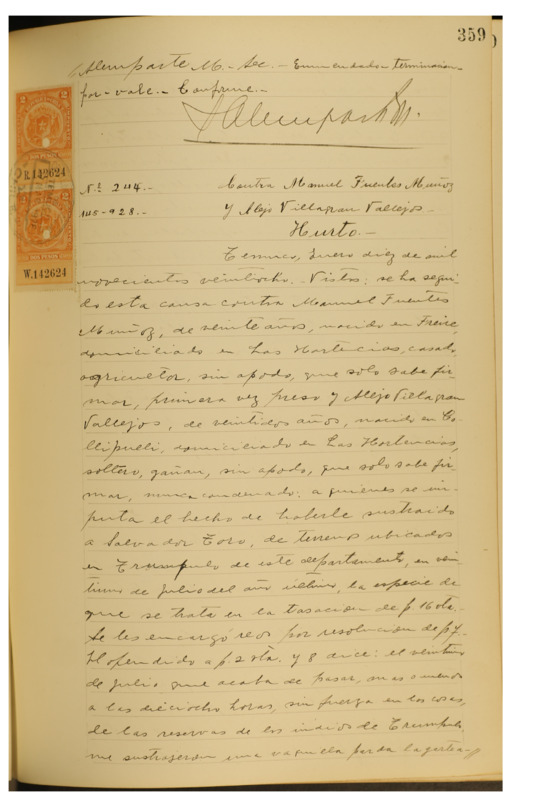 359
Alemparte M - Sec. - Enmendado - terminacion
por - vale. - Conforme. -
N.º 244. -
Contra Manuel Fuentes Muñoz
145-928. -
y Alejo Villagran Vallejos -
Hurto. -
2
R.142624
2
W.142624
Temuco, Enero diez de mil
novecientos veintiocho. - Vistos: se ha segui-
do esta causa contra Manuel Fuentes
Muñoz, de veinte años, nacido en Freire,
domiciliado en Las Hortencias, casado,
agricultor, sin apodo, que solo sabe fir-
mar, primera vez preso y Alejo Villagran
Vallejos, de veintidos años, nacido en Co-
llipulli, domiciliado en Las Hortencias,
soltero, gañan, sin apodo, que solo sabe fir-
mar, nunca condenado; a quienes se im-
puta el hecho de haberle sustraido
a Salvador Toro, de terrenos ubicados
en Trumpulo de este departamento, en vein
tiuno de Julio del año último, la especie de
que se trata en la tasacion de f 16 vta.
Se les encargó reos por resolucion de f 7.
El ofendido a f 2 vta. y 8 dice: el veintiuno
de Julio que acaba de pasar, mas o menos
a las dieciocho horas, sin fuerza en las cosas,
de las reservas de los indios de Trumpulo
me sustrajeron una vaquilla parda